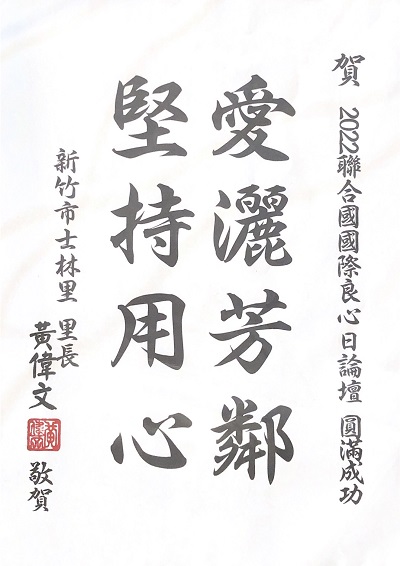 賀 2022聯合國國際良心日論壇 圓滿成功
愛灑芳鄰
堅持用心
新竹市士林里 里長 黃偉文 敬賀